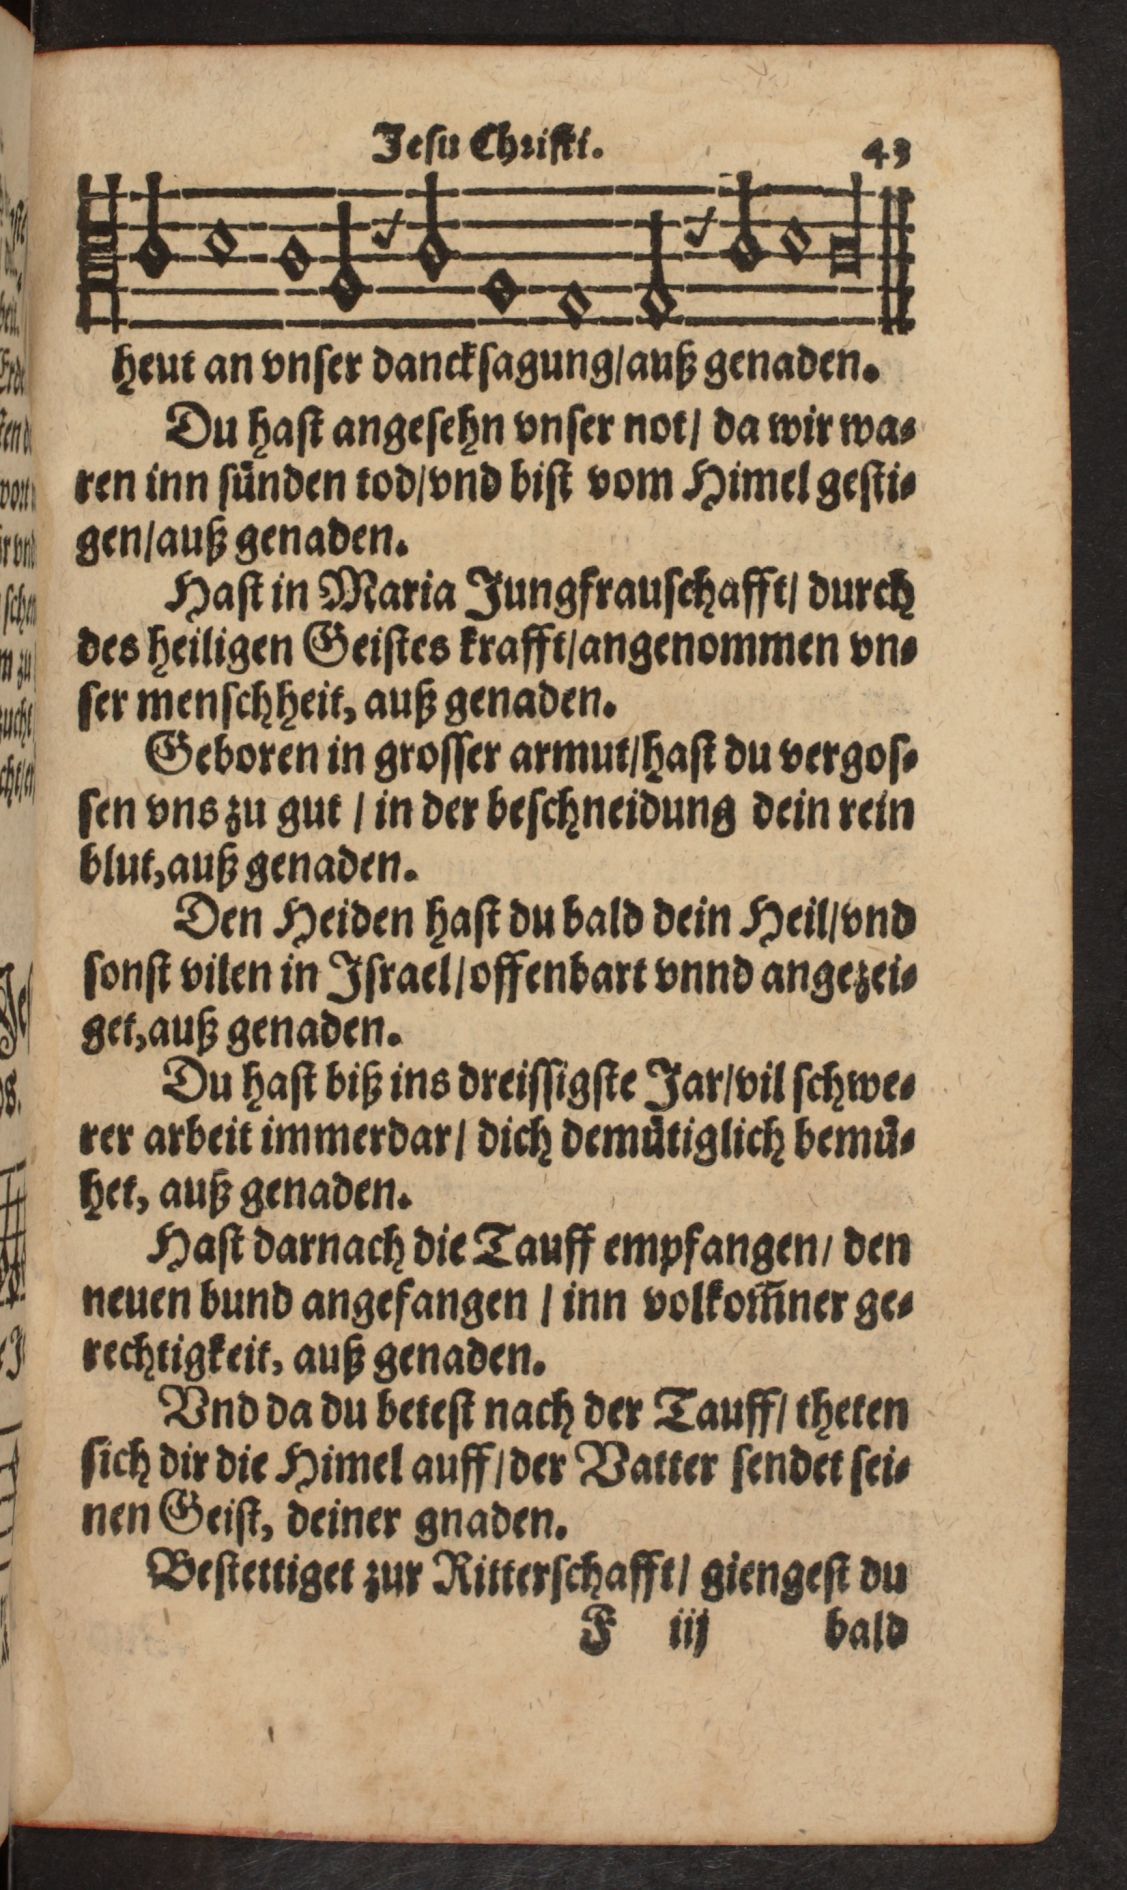 Jesu Christi. 43
heut an vnser dancksagung/auß genaden.
Du hast angesehn vnser not/ da wir wa-
ren inn sünden tod/vnd bist vom Himel gesti-
gen/auß genaden.
Hast in Maria Jungfrauschafft/ durch
des heiligen Geistes krafft/angenommen vn-
ser menschheit, auß genaden.
Geboren in grosser armut/hast du vergos-
sen vns zu gut / in der beschneidung dein rein
blut,auß genaden.
Den Heiden hast du bald dein Heil/vnd
sonst vilen in Israel/offenbart vnnd angezei-
get,auß genaden.
Du hast biß ins dreissigste Jar/vil schwe-
rer arbeit immerdar/ dich demütiglich bemü-
het, auß genaden.
Hast darnach die Tauff empfangen/ den
neuen bund angefangen / inn volkom̃ner ge-
rechtigkeit, auß genaden.
Vnd da du betest nach der Tauff/ theten
sich dir die Himel auff/der Vatter sendet sei-
nen Geist, deiner gnaden.
Bestettiget zur Ritterschafft/ giengest du
F iij bald